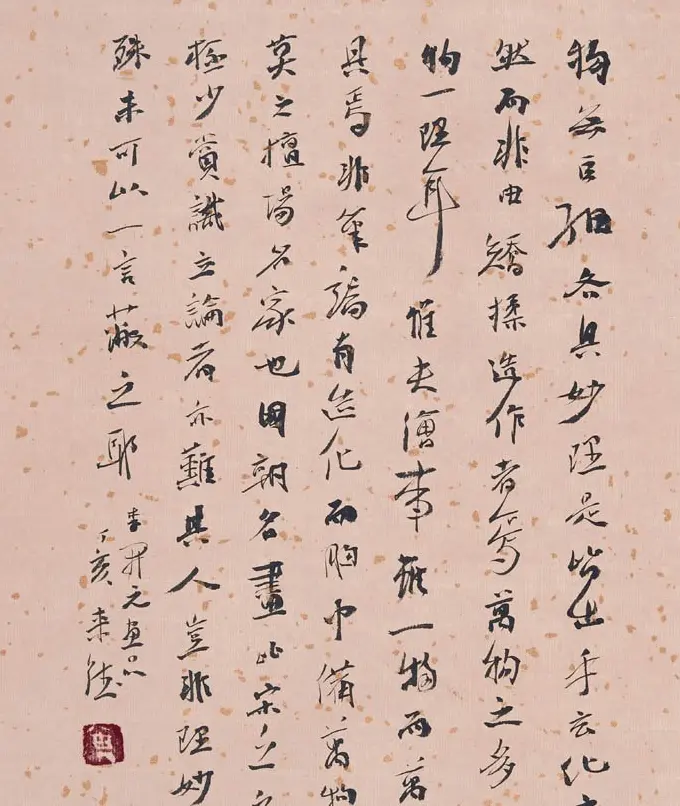 物無巨細各具妙理是皆出乎玄化之
然而非由矯揉造作者焉萬物之多
物一理耳惟夫繪事雖一物而萬
具焉非筆端有造化而胸中備萬物
莫之擅場名家也國朝名畫比宋元之
極少賞識立論者亦難其人豈非理妙
殊未可以一言蔽之耶
李開先畫品
丁亥來